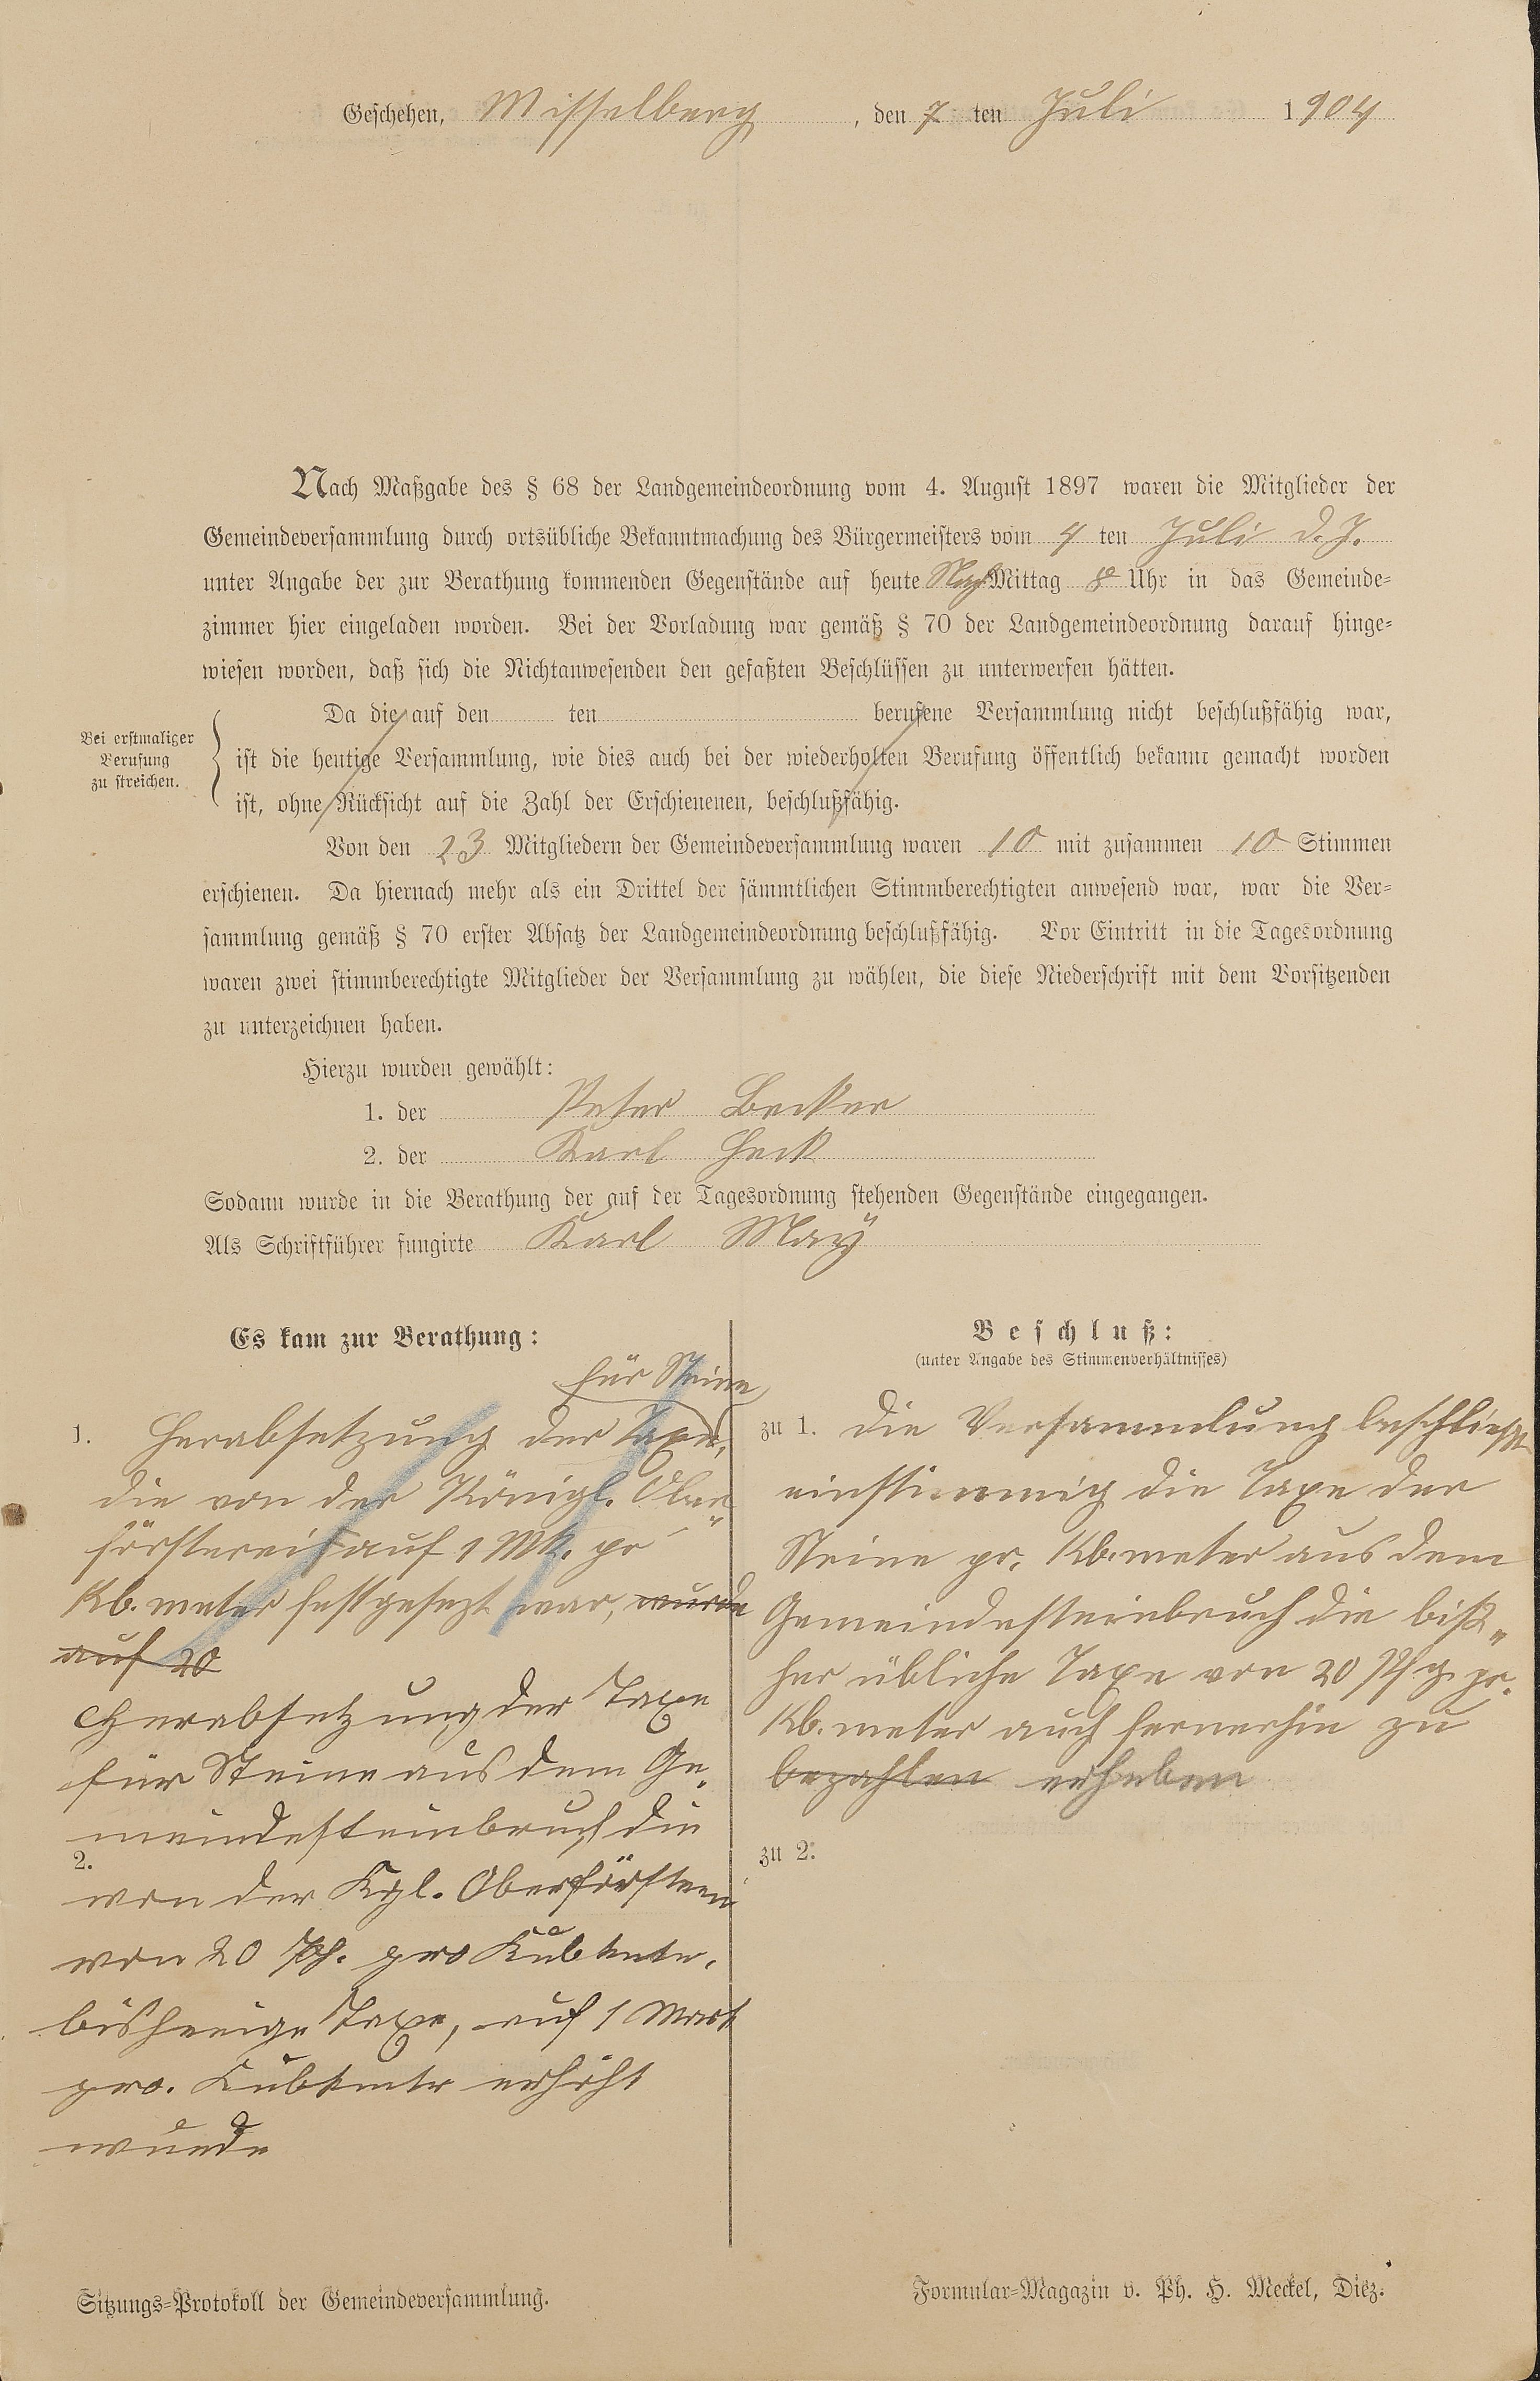 Geschehen, Misselberg, den 7 ten Juli 1904
Nach Maßgabe des § 68 der Landgemeindeordnung vom 4. August 1897 waren die Mitglieder der
Gemeindeversammlung durch ortsübliche Bekanntmachung des Bürgermeisters vom 4 ten Juli d. J.
unter Angabe der zur Berathung kommenden Gegenstände auf heute Nach Mittag 8 Uhr in das Gemeinde-
zimmer hier eingeladen worden. Bei der Vorladung war gemäß § 70 der Landgemeindeordnung darauf hinge-
wiesen worden, daß sich die Nichtanwesenden den gefaßten Beschlüssen zu unterwerfen hätten.
Bei erstmaliger
Berufung
zu streichen.
Da die auf den ten berufene Versammlung nicht beschlußfähig war,
ist die heutige Versammlung, wie dies auch bei der wiederholten Berufung öffentlich bekannt gemacht worden
ist, ohne Rücksicht auf die Zahl der Erschienenen, beschlußfähig.
Von den 23 Mitgliedern der Gemeindeversammlung waren 10 mit zusammen 10 Stimmen
erschienen. Da hiernach mehr als ein Drittel der sämmtlichen Stimmberechtigten anwesend war, war die Ver-
sammlung gemäß § 70 erster Absatz der Landgemeindeordnung beschlußfähig. Vor Eintritt in die Tagesordnung
waren zwei stimmberechtigte Mitglieder der Versammlung zu wählen, die diese Niederschrift mit dem Vorsitzenden
zu unterzeichnen haben.
Hierzu wurden gewählt:
1. der Peter Becker
2. der Karl Heck
Sodann wurde in die Berathung der auf der Tagesordnung stehenden Gegenstände eingegangen.
Als Schriftführer fungirte Karl Maÿ
Es kam zur Berathung:
für Steine
1. Herabsetzung der Taxe,
die von der Königl. Ober
försterei auf 1 Mk. pr
Kb. meter festgesezt war, wurde
auf 20
Herabsetzung der Taxe
für Steine aus dem Ge-
meindesteinbruch die
2.
von der Kgl. Oberförsterei
von 20 Pf. pro Kubkmtr.
bisherige Taxe, auf 1 Mark
pro. Kubkmtr erhöht
wurde
Beschluß:
(unter Angabe des Stimmenverhältnisses)
zu 1. die Versammlung beschließt
einstimmig die Taxe der
Steine pr. Kb. meter aus dem
Gemeindesteinbruch die biß-
her übliche Taxe von 20 Pfg. pr.
Kb. meter auch fernerhin zu
bezahlen erheben
zu 2.
Sitzungs-Protokoll der Gemeindeversammlung.
Formular-Magazin v. Ph. H. Meckel, Diez.